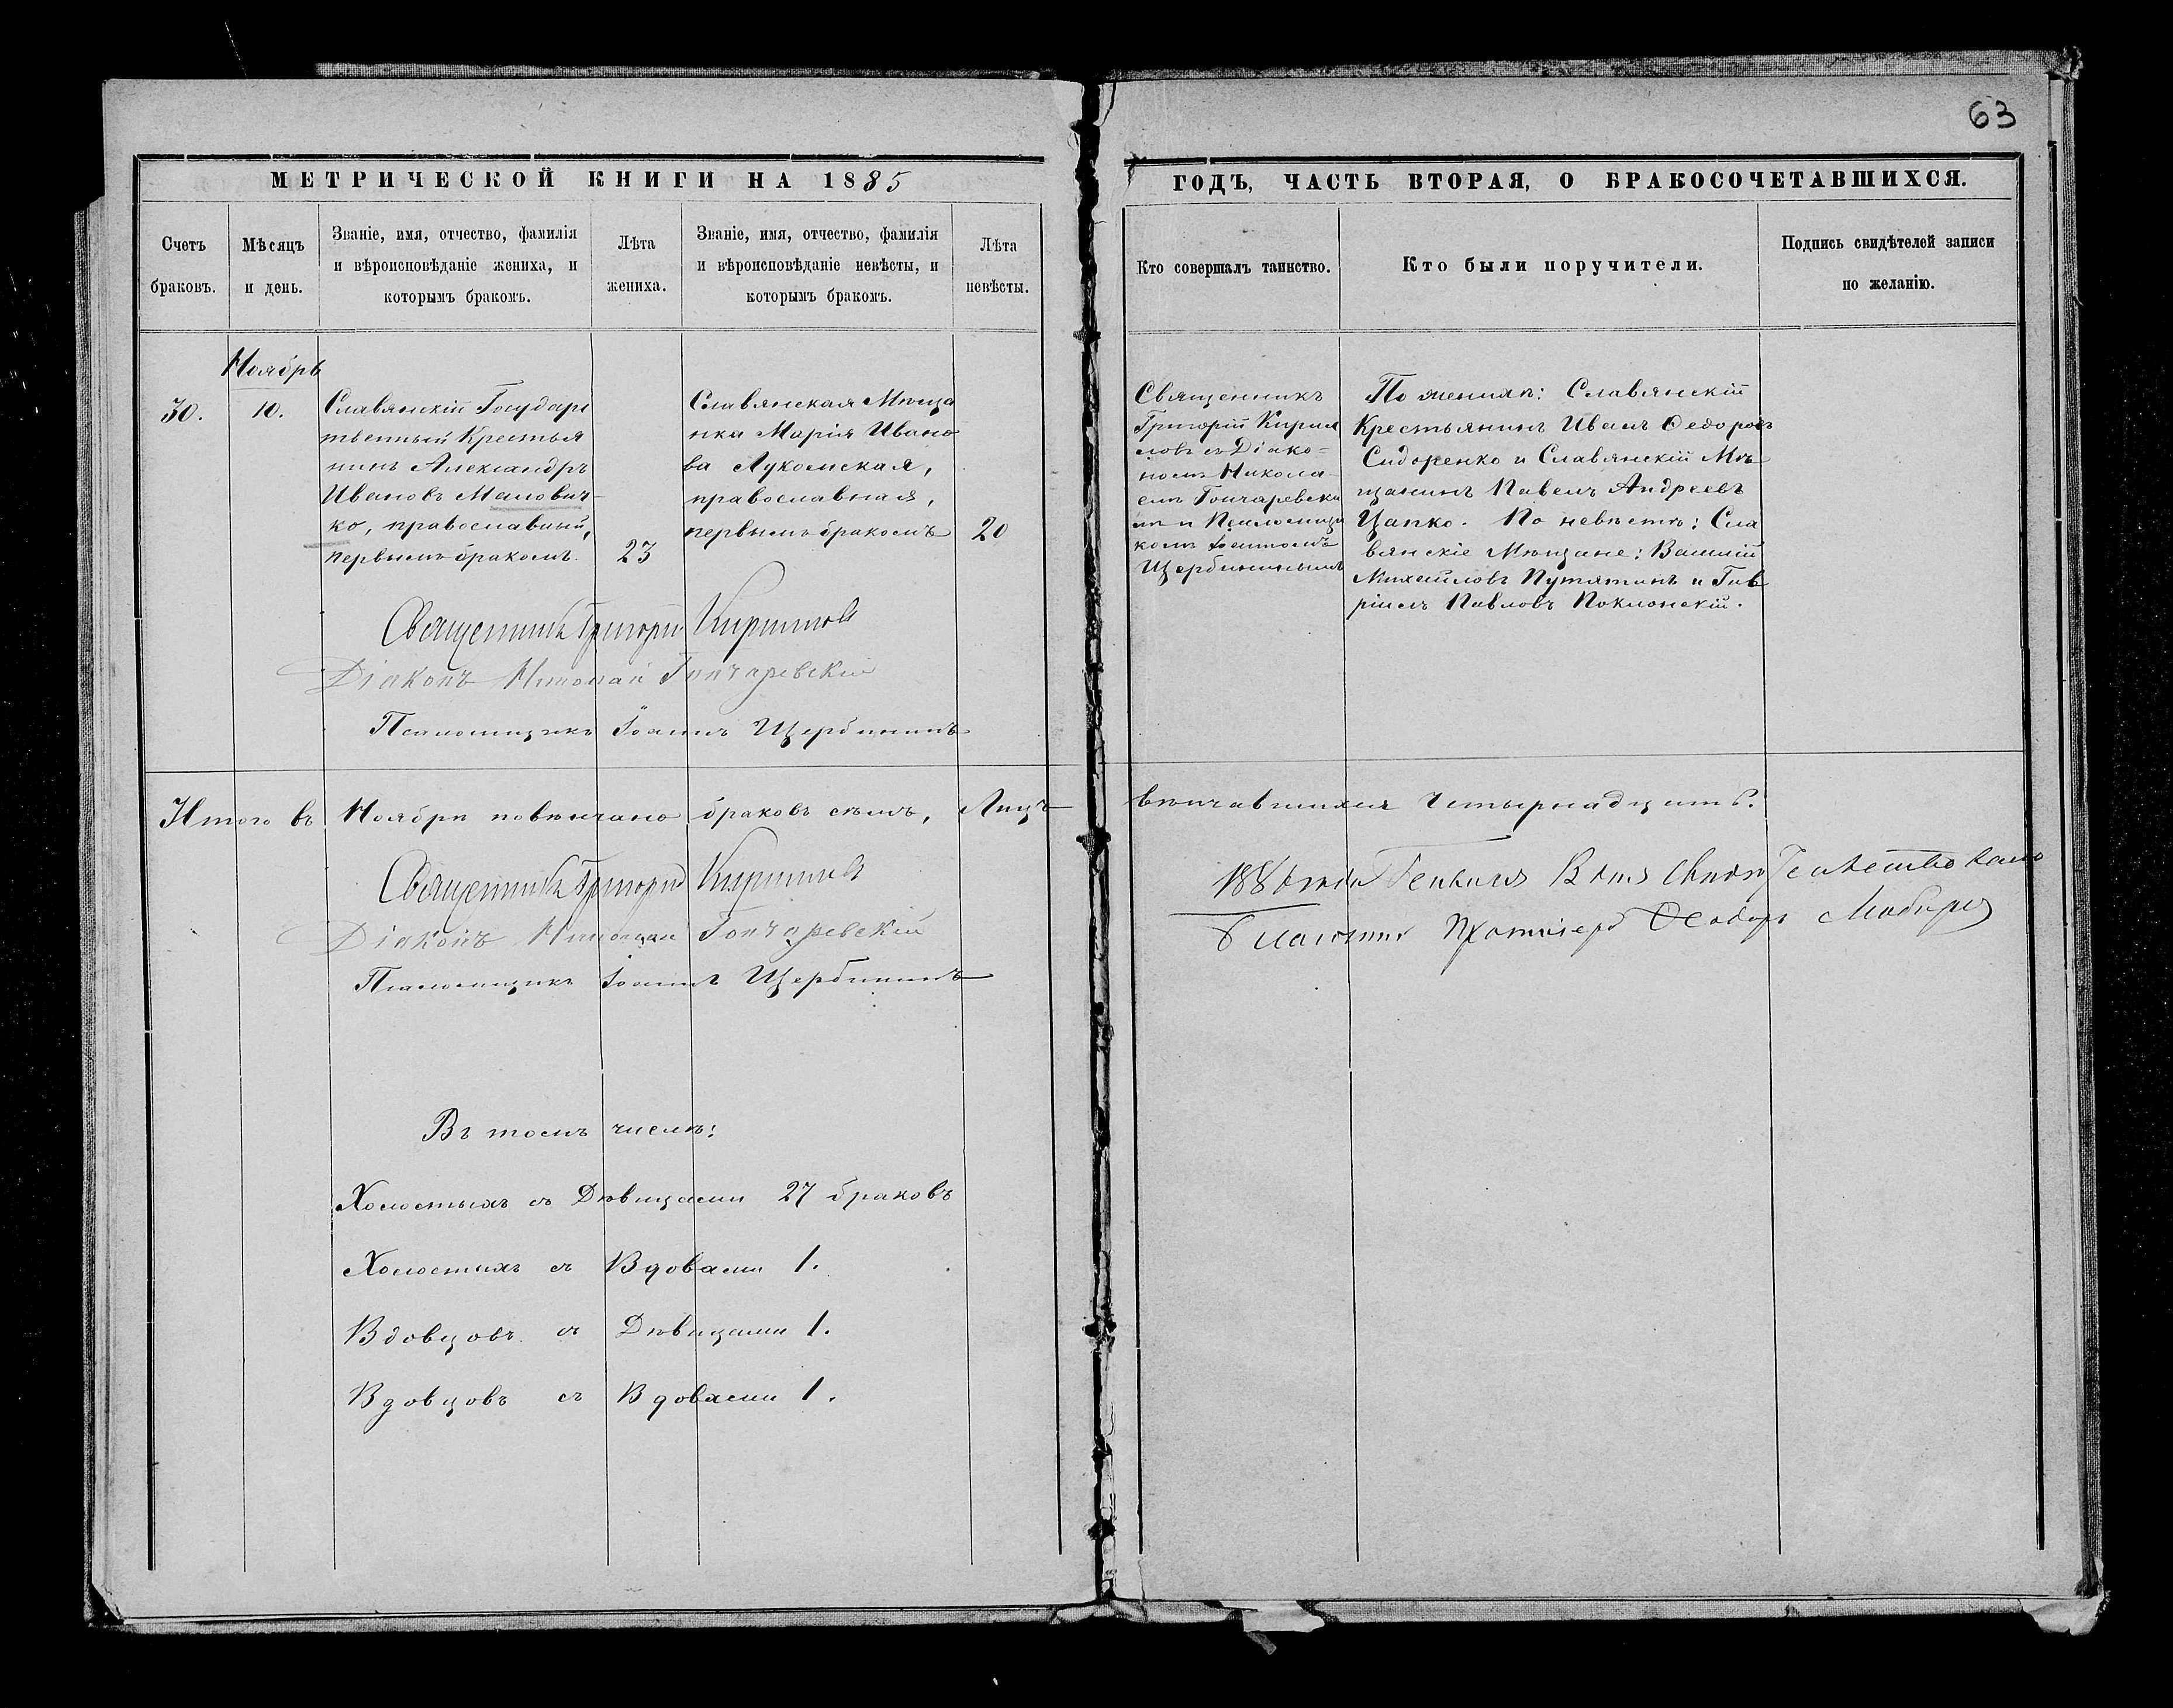 63
МЕТРИЧЕСКОЙ КНИГИ НА 1885
ГОДЪ, ЧАСТЬ ВТОРАЯ, О БРАКОСОЧЕТАВШИХСЯ.
Счетъ
браковъ.
Мѣсяцъ
и день.
Званіе, имя, отчество, фамилія
и вѣроисповѣданіе жениха, и
которымъ бракомъ.
Лѣта
жениха.
Званіе, имя, отчество, фамилія
и вѣроисповѣданіе невѣсты, и
которымъ бракомъ.
Лѣта
невѣсты.
Кто совершалъ таинство.
Кто были поручители.
Подпись свидѣтелей записи
по желанію.
30.
Ноябрь
10.
Славянскій Государс
твенный Крестья
нинъ Александръ
Ивановъ Малович-
ко, православный,
первымъ бракомъ.
23
Славянская Мѣща
нка Марія Ивано
ва Лукомская,
православная,
первымъ бракомъ
20
Священникъ
Григорій Кирил
ловъ съ Діако-
номъ Никола-
емъ Гончаревски
мъ и Псаломщи
комъ Іоанномъ
Щербининымъ
По женихѣ: Славянскій
Крестьянинъ Иванъ Ѳедоровъ
Сидоренко и Славянскій Мѣ-
щанинъ Павелъ Андреевъ
Цапко. По невѣстѣ: Сла
вянскіе Мѣщане: Василій
Михайловъ Путятинъ и Гав
ріилъ Павловъ Поклонскій.
Священникъ Григорій Кирилловъ
Діаконъ Николай Гончаревскій
Псаломщикъ Іоаннъ Щербининъ
Итого въ Ноябрѣ повѣнчано браковъ семь, Лицъ
вѣнчавшихся четырнадцать.
Священникъ Григорій Кирилловъ
Діаконъ Николай Гончаревскій
Псаломщикъ Іоаннъ Щербининъ
1886 года Генваря
Благочин Протоіерей Ѳеодоръ
Въ томъ числѣ:
Холостыхъ съ Дѣвицами 27 браковъ
Холостыхъ съ Вдовами 1.
Вдовцовъ съ Дѣвицами 1.
Вдовцовъ съ Вдовами 1.